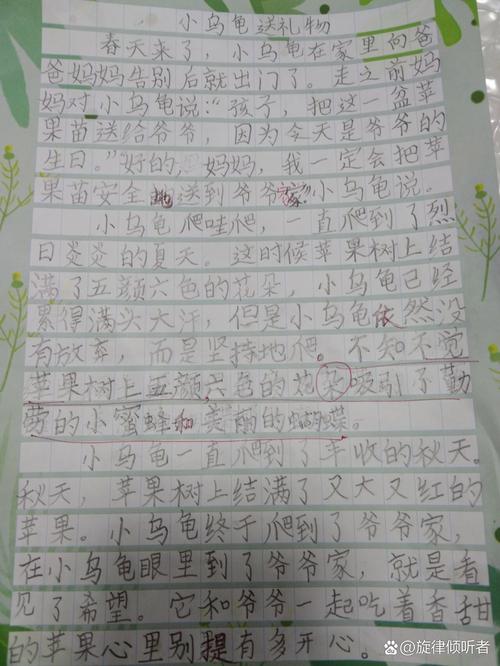 小乌龟送礼物
春天来了，小乌龟在家里向爸
爸妈妈告别后就出门了。走之前妈
妈对小乌龟说：“孩子，把这一盆苹
果苗送给爷爷，因为今天是爷爷的
生日。”“好的，妈妈，我一定会把苹
果苗安全地送到爷爷家”小乌龟说。
小乌龟爬哇爬，一直爬到了烈
日炎炎的夏天。这时候苹果树上结
满了五颜六色的花朵，小乌龟已经
累得满头大汗，但是小乌龟依然没
有放弃，而是坚持地爬。不知不觉
苹果树上五颜六色的花朵吸引了勤
劳的小蜜蜂和美丽的蝴蝶。
小乌龟一直爬到了丰收的秋天。
秋天，苹果树上结满了又大又红的
苹果。小乌龟终于爬到了爷爷家，
在小乌龟眼里到了爷爷家，就是看
见了希望。它和爷爷一起吃着香甜
的苹果心里别提有多开心。
@旋律倾听者